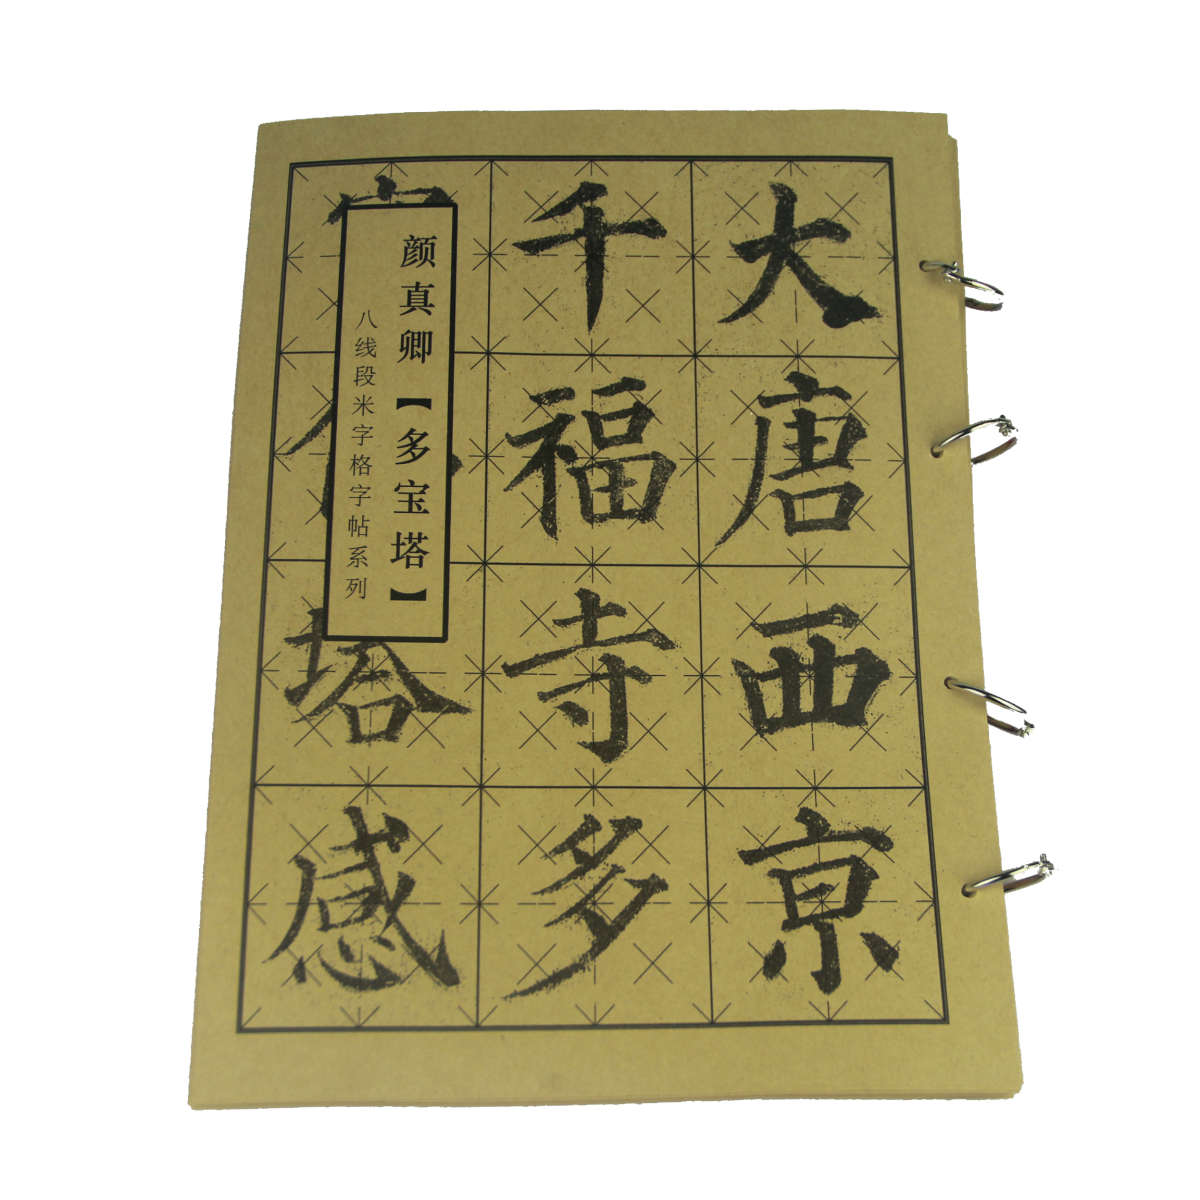 大唐西亰
千福寺多
塔感
颜真卿【多宝塔】
八线段米字格字帖系列